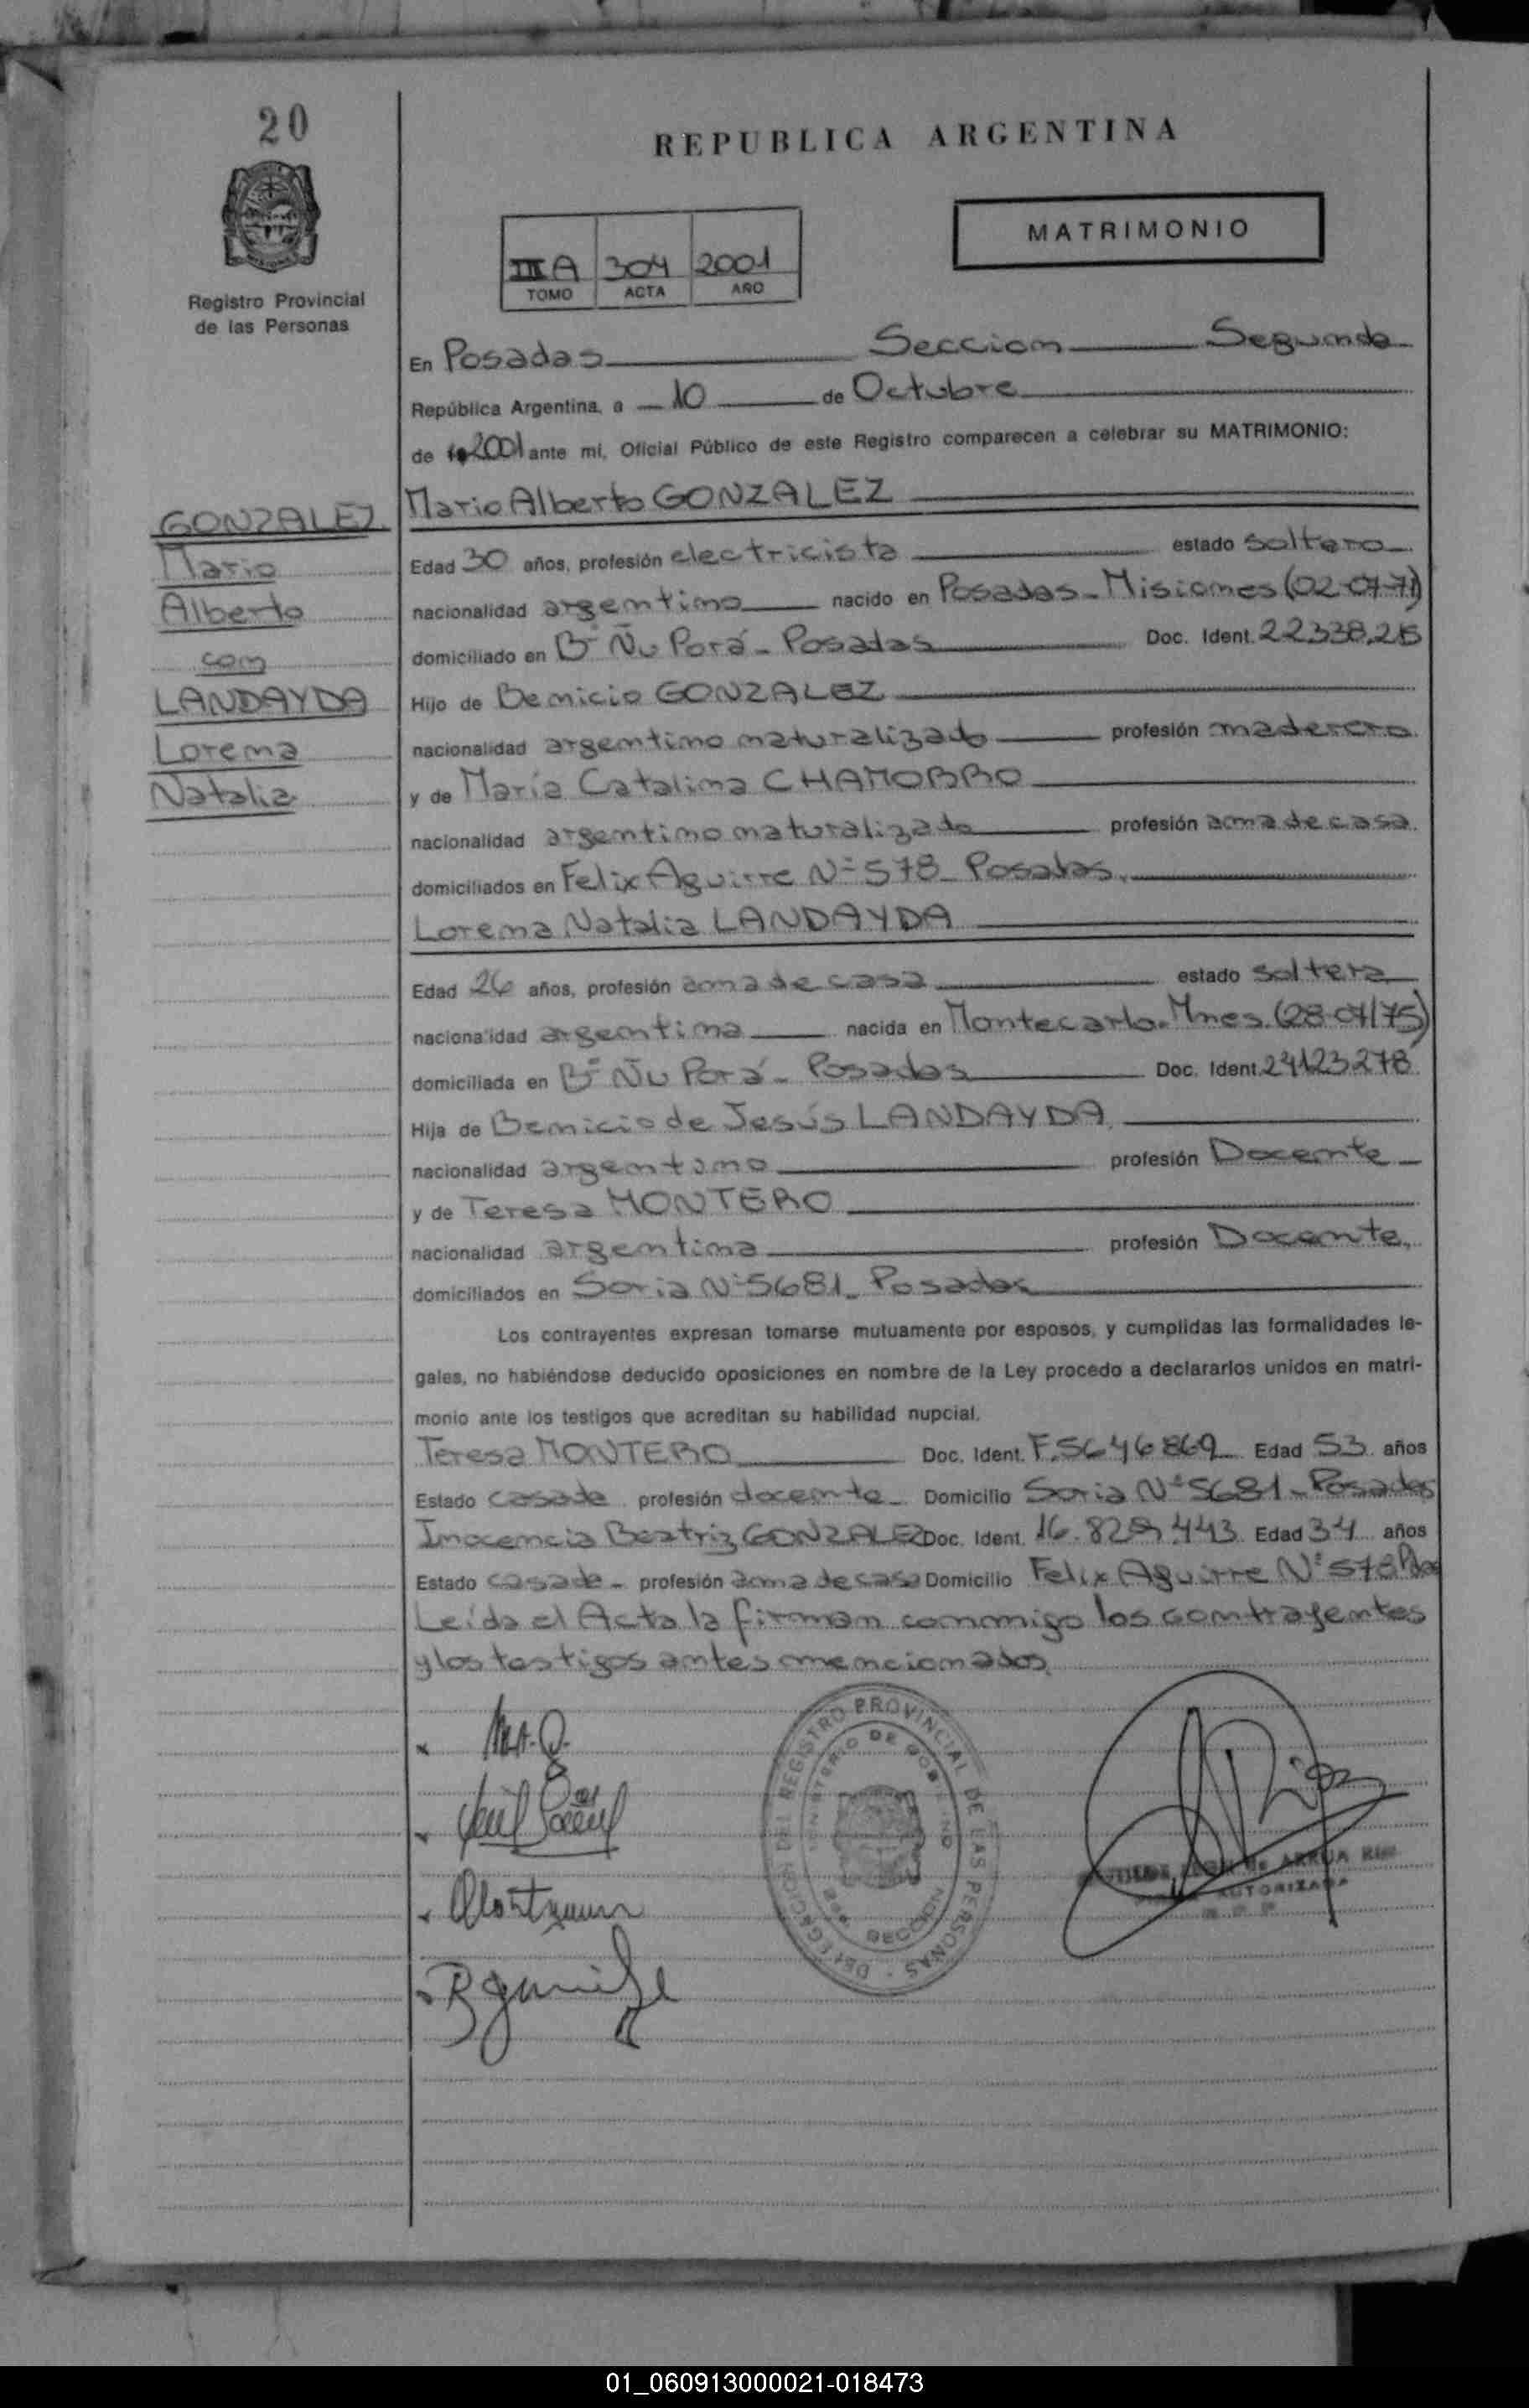 20
REPUBLICA ARGENTINA
MATRIMONIO
III A 304 2001
TOMO ACTA AÑO
Registro Provincial
de las Personas
En Posadas Seccion Segunda
República Argentina, a 10 de Octubre
de 2001 ante mí, Oficial Público de este Registro comparecen a celebrar su MATRIMONIO:
GONZALEZ
Mario
Alberto
con
LANDAYDA
Lorena
Natalia
Mario Alberto GONZALEZ
Edad 30 años, profesión electricista estado soltero
nacionalidad argentino nacido en Posadas - Misiones (02-07-71)
domiciliado en Bº Ñu Porá - Posadas Doc. Ident. 22.338.215
Hijo de Benicio GONZALEZ
nacionalidad argentino naturalizado profesión maderero
y de María Catalina CHAMORRO
nacionalidad argentino naturalizado profesión ama de casa
domiciliados en Felix Aguirre Nº 578 - Posadas.
Lorena Natalia LANDAYDA
Edad 26 años, profesión ama de casa estado soltera
nacionalidad argentina nacida en Montecarlo - Mnes. (28-04/75)
domiciliada en Bº Ñu Porá - Posadas Doc. Ident. 24123278
Hija de Benicio de Jesús LANDAYDA
nacionalidad argentino profesión Docente
y de Teresa MONTERO
nacionalidad argentina profesión Docente
domiciliados en Soria Nº 5681 - Posadas
Los contrayentes expresan tomarse mutuamente por esposos, y cumplidas las formalidades le-
gales, no habiéndose deducido oposiciones en nombre de la Ley procedo a declararlos unidos en matri-
monio ante los testigos que acreditan su habilidad nupcial.
Teresa MONTERO Doc. Ident. F.5646869 Edad 53 años
Estado casada profesión docente Domicilio Soria Nº 5681 - Posadas
Inocencia Beatriz GONZALEZ Doc. Ident. 16.829.443 Edad 34 años
Estado casada - profesión ama de casa Domicilio Felix Aguirre Nº 578 Pdas
Leída el Acta la firman conmigo los contrayentes
y los testigos antes mencionados
M.A.G.
DELEGACION DEL REGISTRO PROVINCIAL DE LAS PERSONAS
MINISTERIO DE GOBIERNO
SECCION
AUTORIZADA
01_060913000021-018473